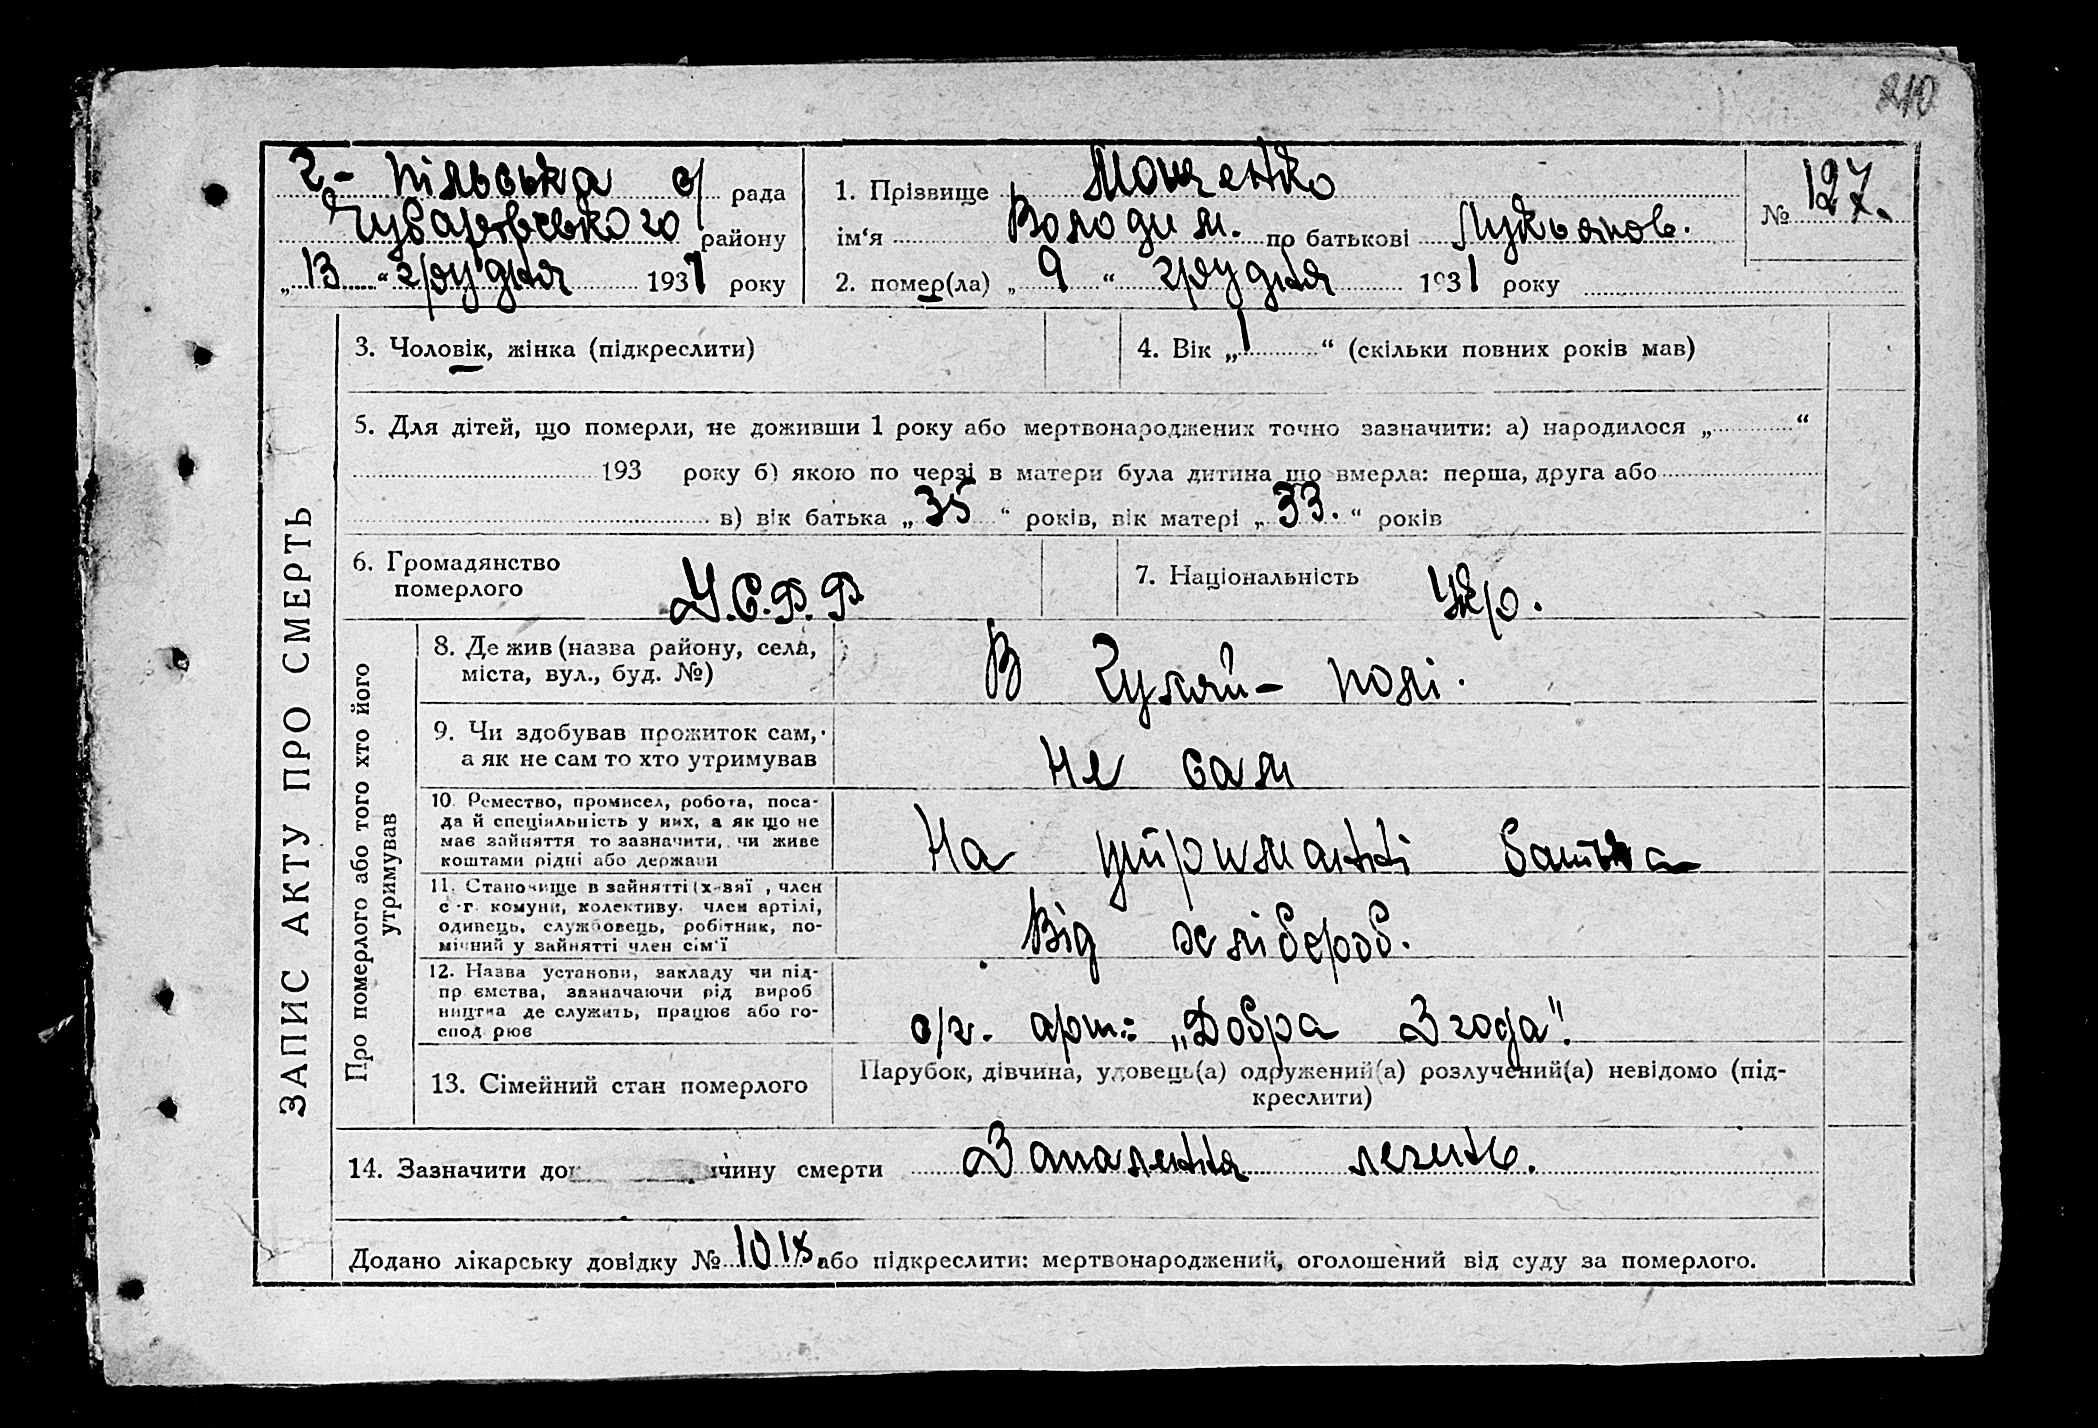 210
2- пільська с/ рада
Чубарівського району
„13“ грудня 1931 року
1. Прізвище Мощенко
ім‘я Володим. по батькові Лукьянов.
2. помер(ла) „9“ грудня 1931 року
№ 127.
3. Чоловік, жінка (підкреслити)
4. Вік „1“ (скільки повних років мав)
5. Для дітей, що померли, не доживши 1 року або мертвонароджених точно зазначити: а) народилося „ “
193 року б) якою по черзі в матери була дитина що вмерла: перша, друга або
в) вік батька „35“ років, вік матері „33.“ років
6. Громадянство
померлого
У.С.Р.Р
7. Національність Укр.
ЗАПИС АКТУ ПРО СМЕРТЬ
Про померлого або того хто його
утримував
8. Де жив (назва району, села,
міста, вул., буд. №)
В Гуляй- полі.
9. Чи здобував прожиток сам,
а як не сам то хто утримував
Не сам
10. Ремество, промисел, робота, поса-
да й спеціяльність у них, а як що не
має зайняття то зазначити, чи живе
коштами рідні або держави
На утриманні батька
11. Становище в зайнятті (х-вяї , член
с.-г. комуни, колективу, член артілі,
одинець, службовець, робітник, по-
мічний у зайнятті член сім'ї
Від хлібороб.
12. Назва установи, закладу чи під-
пр ємства, зазначаючи рід вироб
ництва де служить, працює або го-
спод рює
с/г. арт.: „Добра Згода".
13. Сімейний стан померлого
Парубок, дівчина, удовець(а) одружений(а) розлучений(а) невідомо (під-
креслити)
14. Зазначити до чину смерти Запалення легень.
Додано лікарську довідку № 1018 або підкреслити: мертвонароджений, оголошений від суду за померлого.